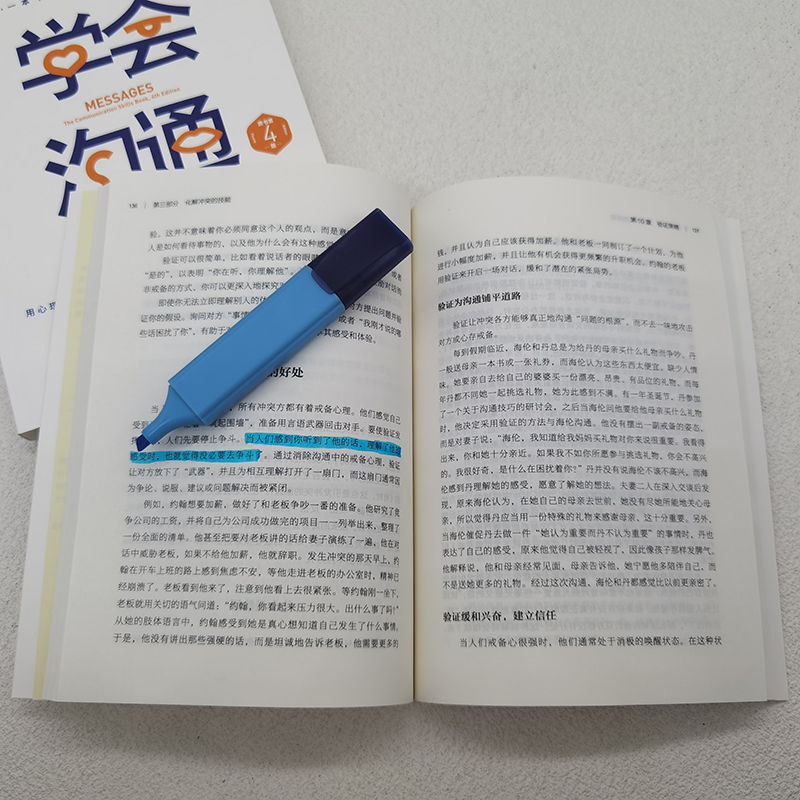 学会
MESSAGES
The Communication Skills Book, 4th Edition
沟通
4
136 | 第三部分 化解冲突的技能
验。这并不意味着你必须同意这个人的观点，而是意
人是如何看待事物的，以及他为什么会有这种感觉
验证可以很简单，比如看着说话者的眼
“是的”，以表明“你在听、你理解他”。
或者
非戒备的方式，你可以更深入地探究
励对话的
即使你无法立即理解别人的体
方提出问题开始
证你的假设。询问对方“事情
或者“我刚才说的哪
些话困扰了你”，有助于
其感受和体验。
的好处
所有冲突方都有着戒备心理。他们感觉自己
受到
“筑起围墙”，准备用言语武器回击对手。要使验证发
人们先要停止争斗。当人们感到你听到了他的话，理解了他的
感觉时，也就觉得没必要去争斗了。通过消除沟通中的戒备心理，验证
让对方放下了“武器”，并且为相互理解打开了一扇门，而这扇门通常因
为争论、说服、建议或问题解决而被紧闭。
例如，约翰想要加薪，做好了和老板争吵一番的准备。他研究了竞
争公司的工资，并将自己为公司成功做完的项目一一列举出来，整理了
一份全面的清单。他甚至把要对老板讲的话给妻子演练了一遍，他在对
话中威胁老板，如果不给他加薪，他就辞职。发生冲突的那天早上，约
翰在开车上班的路上感到焦虑不安，等他走进老板的办公室时，精神已
经崩溃了。老板看到他来了，注意到他看上去很紧张。等约翰刚一坐下，
老板就用关切的语气问道：“约翰，你看起来压力很大。出什么事了吗？”
从她的肢体语言中，约翰感受到她是真心想知道自己发生了什么事情。
于是，他没有讲出那些强硬的话，而是坦诚地告诉老板，他需要更多的
第10章 验证策略 | 137
钱，并且认为自己应该获得加薪。他和老板一同制订了一个计划，为他
进行小幅度加薪，并且让他有机会获得更频繁的升职机会。约翰的老板
用验证来开启一场对话，缓和了潜在的紧张局势。
验证为沟通铺平道路
验证让冲突各方能够真正地沟通“问题的根源”，而不去一味地攻击
对方或心存戒备。
每到假期临近，海伦和丹总是为给丹的母亲买什么礼物而争吵。丹
一般送母亲一本书或一张礼券，而海伦认为这些东西太便宜，缺少人情
味。她要亲自去给自己的婆婆买一份漂亮、昂贵、有品位的礼物，而每
年丹都不同她一起挑选礼物，她为此感到不满。有一年圣诞节，丹参加
了一个关于沟通技巧的研讨会，之后当海伦问他要给他母亲买什么礼物
时，他决定采用验证的方法与海伦沟通。他没有摆出一副戒备的姿态，
而是对妻子说：“海伦，我知道给我妈妈买礼物对你来说很重要。我看得
出来，你和她十分亲近。如果我不如你所愿参与挑选礼物，你会不高兴
的。我很好奇，是什么在困扰着你？”丹并没有说海伦不该不高兴，而海
伦感到丹理解她的感觉，愿意了解她的想法。夫妻二人在深入交谈后发
现，原来海伦认为，在她自己的母亲去世前，她没有尽她所能地关心母
亲，所以觉得丹应当用一份特殊的礼物来感谢母亲，这十分重要。另外，
当海伦催促丹去做一件“她认为重要而丹不认为重要”的事情时，丹也
表达了自己的感受，原来他觉得自己被轻视了，因此像孩子那样发脾气。
他解释说，他和母亲经常见面，母亲告诉他，她宁愿他多陪伴自己，而
不是送她更多的礼物。经过这次沟通，海伦和丹都感觉比以前更亲密了。
验证缓和兴奋，建立信任
当人们戒备心很强时，他们通常处于消极的唤醒状态。在这种状